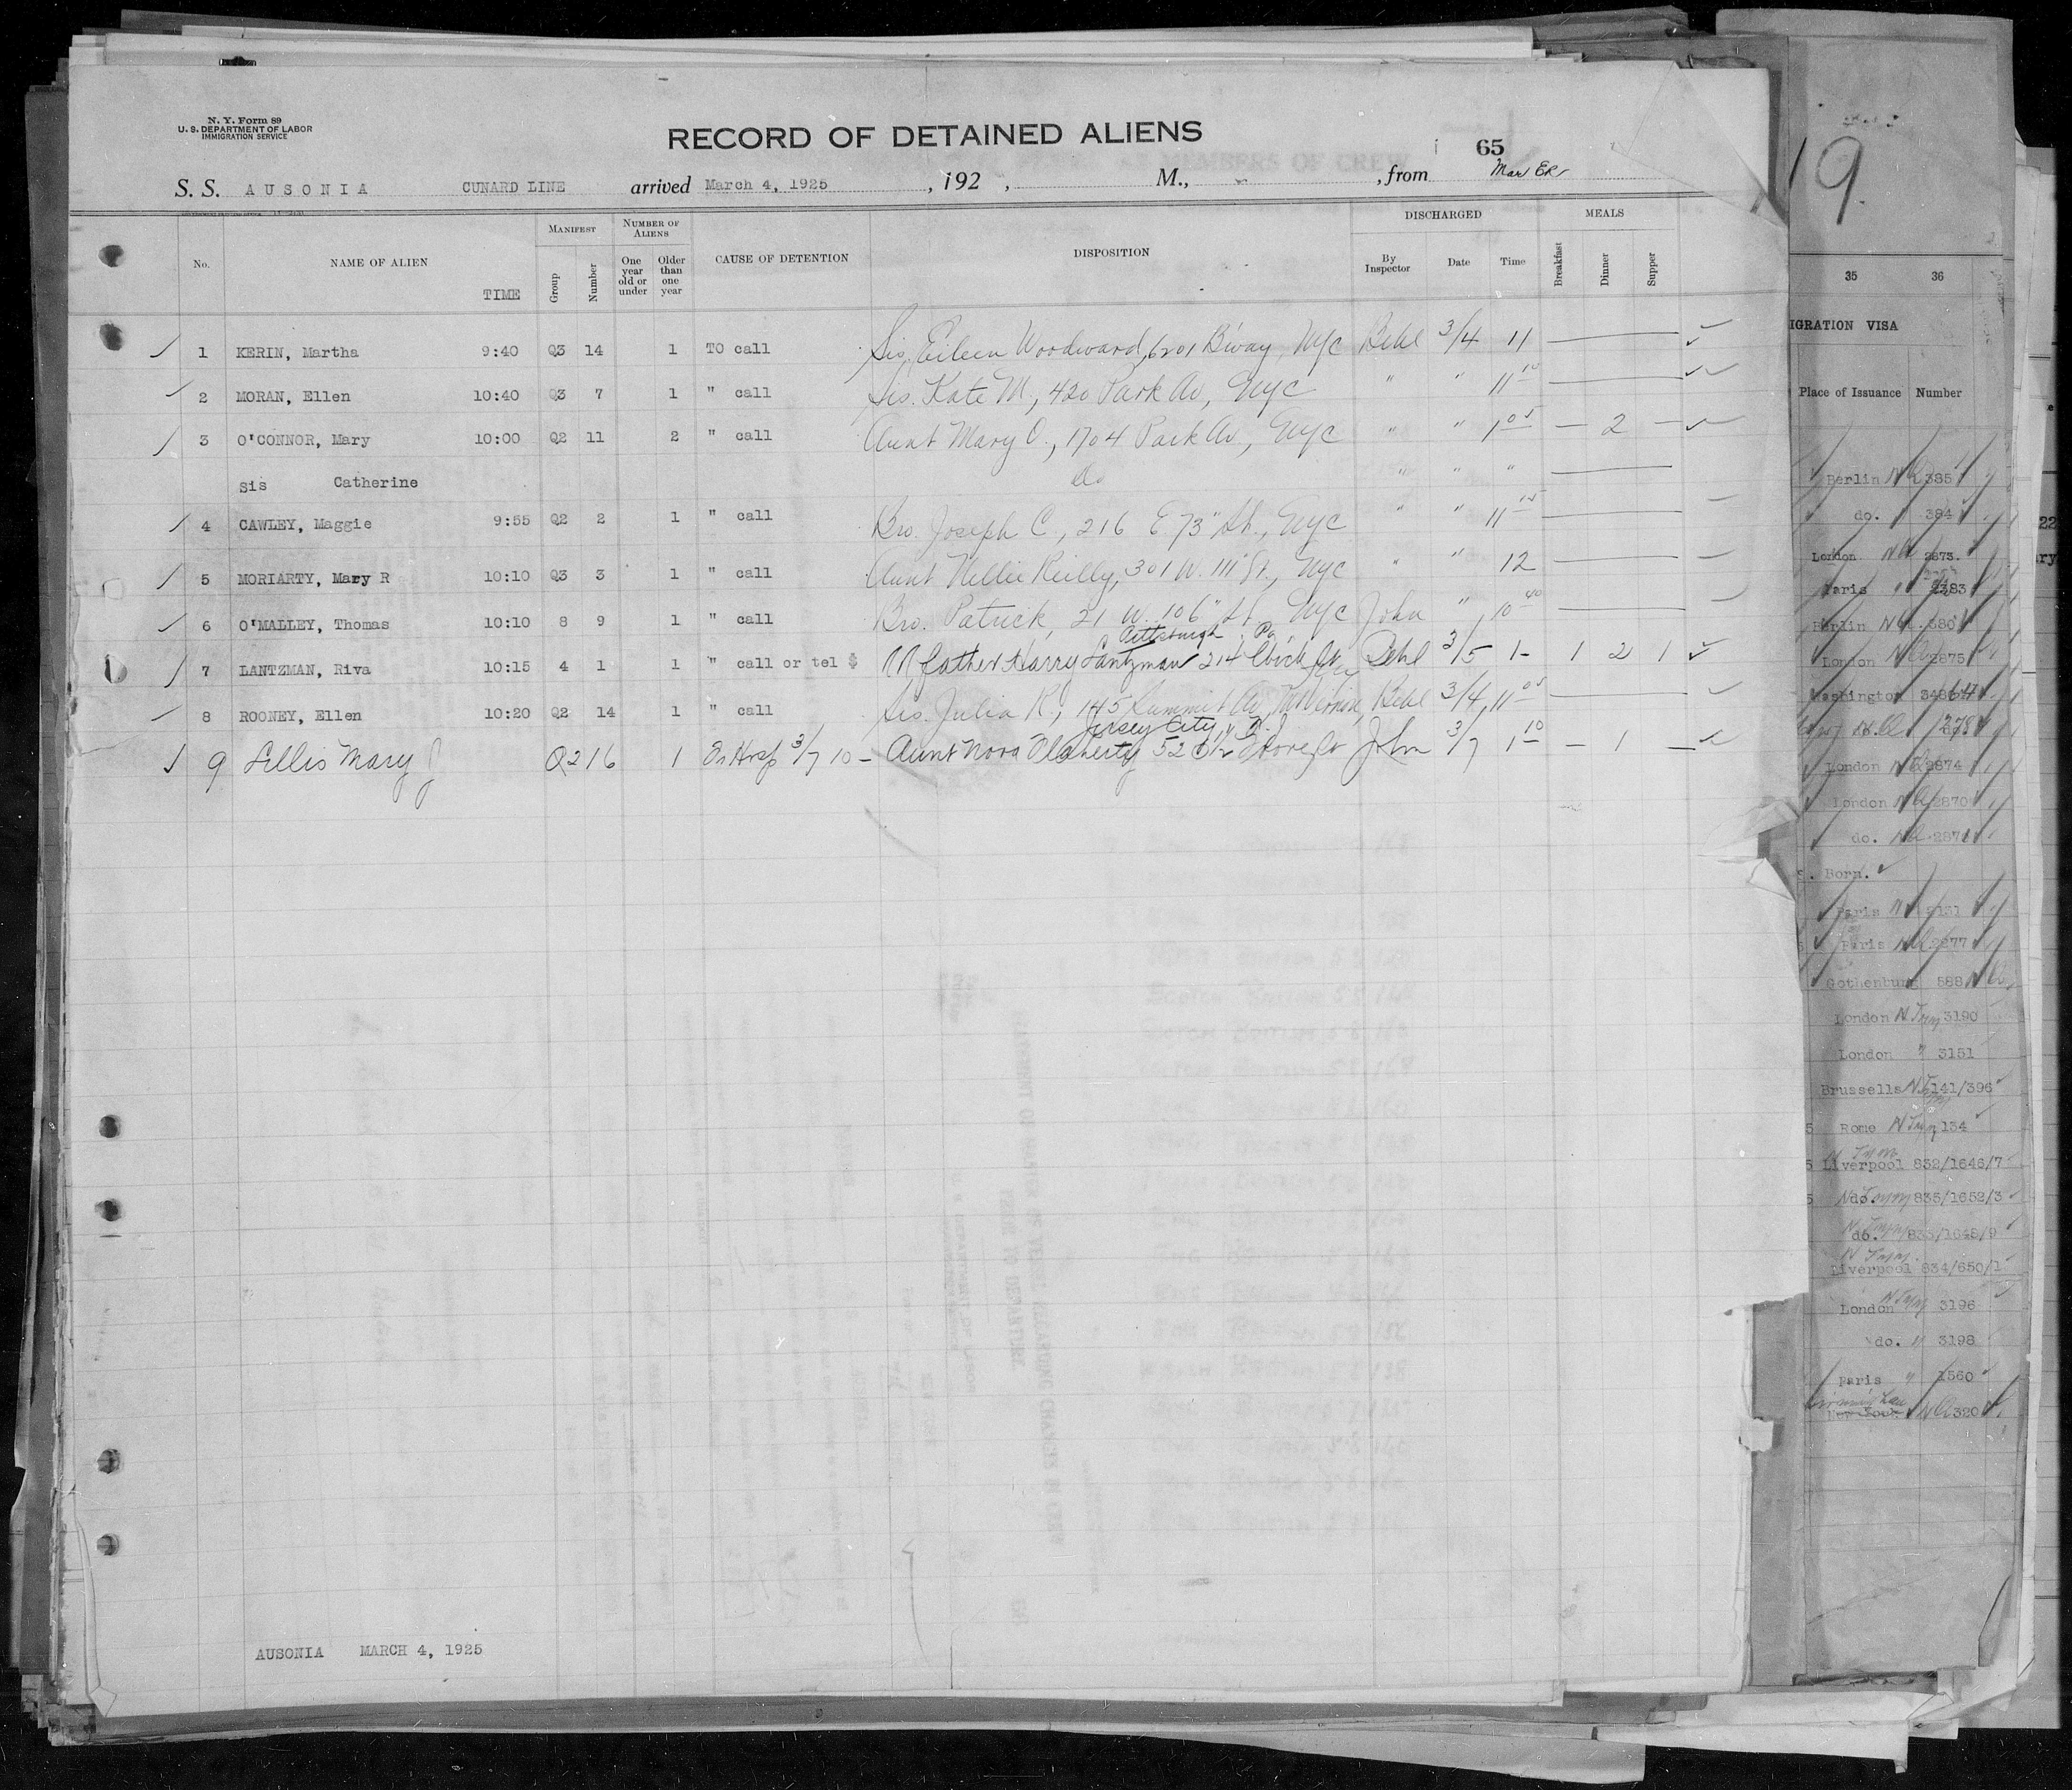 N. Y. Form 89
U. S. DEPARTMENT OF LABOR
IMMIGRATION SERVICE
RECORD OF DETAINED ALIENS
65
S. S. AUSONIA CUNARD LINE arrived March 4, 1925, 192 , M., , from
No.
NAME OF ALIEN
TIME
MANIFEST
Group
Number
NUMBER OF ALIENS
One year old or under
Older than one year
CAUSE OF DETENTION
DISPOSITION
DISCHARGED
By Inspector
Date
Time
MEALS
Breakfast
Dinner
Supper
1 KERIN, Martha 9:40 Q3 14 1 TO call Sis. Eileen Woodward, 6201 B'way, NYC 3/4 11
2 MORAN, Ellen 10:40 Q3 7 1 " call Sis. Kate M., 420 Park Av, NYC " " 11 10
3 O'CONNOR, Mary 10:00 Q2 11 2 " call Aunt Mary O., 1704 Park Av., NYC " " 1 05 — 2 —
Sis Catherine Do " " "
4 CAWLEY, Maggie 9:55 Q2 2 1 " call Bro. Joseph C, 216 E 73" St., NYC " " 11 15
5 MORIARTY, Mary R 10:10 Q3 3 1 " call Aunt Nellie Reilly, 301 W. 111" St., NYC " " 12
6 O'MALLEY, Thomas 10:10 8 9 1 " call Bro. Patrick, 21 W. 106" St., NYC John " 10 40
Pittsburgh, Pa
7 LANTZMAN, Riva 10:15 4 1 1 " call or tel $ father Harry Lantzman 214 3/5 1- 1 2 1
8 ROONEY, Ellen 10:20 Q2 14 1 " call Sis. Julia R., 145 Summit Av, Mt Vernon, 3/4 11 05
Jersey City, N.J.
9 Lillis Mary Q2 16 1 In Hosp 3/7 10 - Aunt Nora Flaherty 52 John 3/7 1 10 — 1 —
AUSONIA MARCH 4, 1925
19.
35 36
IGRATION VISA
Place of Issuance Number
Berlin 385
do. 384
London 2873
Paris 2383
Berlin 380
London 2875
Washington
London 2874
London 2870
do. 2871
Born.
Paris
Paris
Gothenburg 588
London 3190
London " 3151
Brussells 141/396
Rome 134
Liverpool 832/1646/7
do. 835/1652/3
do. 833/1648/9
Liverpool 834/650/1
London 3196
do. " 3198
Paris " 1560
New York 320